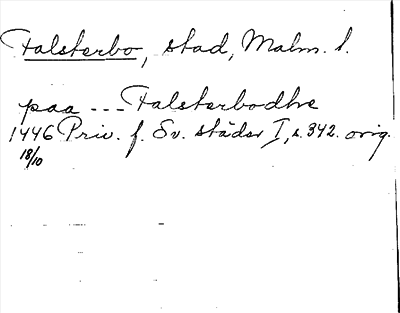 Falsterbo, stad, Malm. l.
paa --- Falsterbodhe
1446 Priv. f. Sv. städer I, s. 342. orig.
18/10